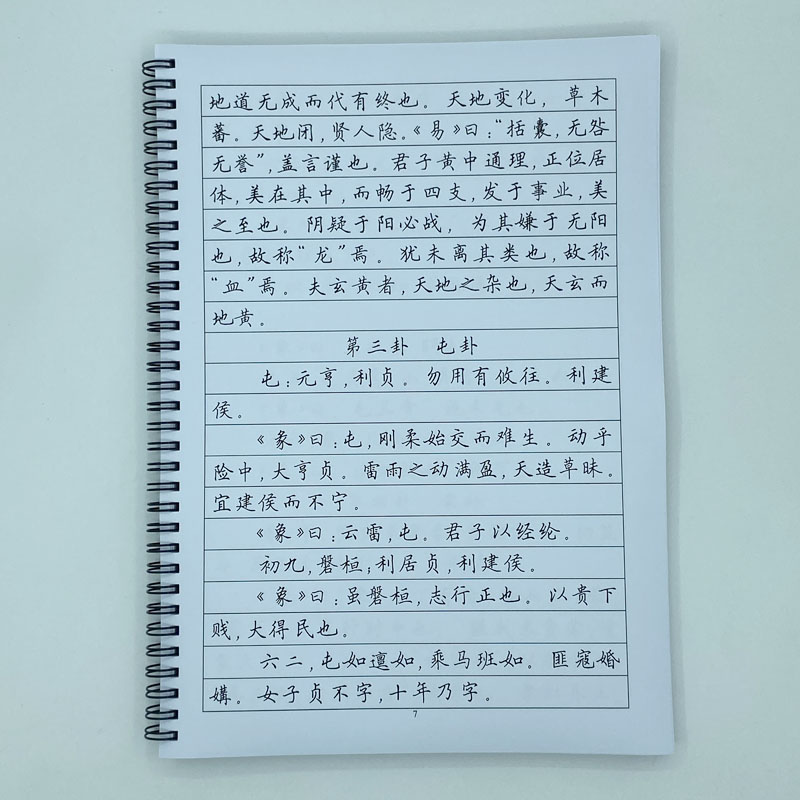 地道无成而代有终也。天地变化，草木
蕃。天地闭，贤人隐。《易》曰：“括囊，无咎
无誉”，盖言谨也。君子黄中通理，正位居
体，美在其中，而畅于四支，发于事业，美
之至也。阴疑于阳必战，为其嫌于无阳
也，故称“龙”焉。犹未离其类也，故称
“血”焉。夫玄黄者，天地之杂也，天玄而
地黄。
第三卦 屯卦
屯：元亨，利贞。勿用有攸往。利建
侯。
《彖》曰：屯，刚柔始交而难生。动乎
险中，大亨贞。雷雨之动满盈，天造草昧。
宜建侯而不宁。
《象》曰：云雷，屯。君子以经纶。
初九，磐桓；利居贞，利建侯。
《象》曰：虽磐桓，志行正也。以贵下
贱，大得民也。
六二，屯如邅如，乘马班如。匪寇婚
媾。女子贞不字，十年乃字。
7